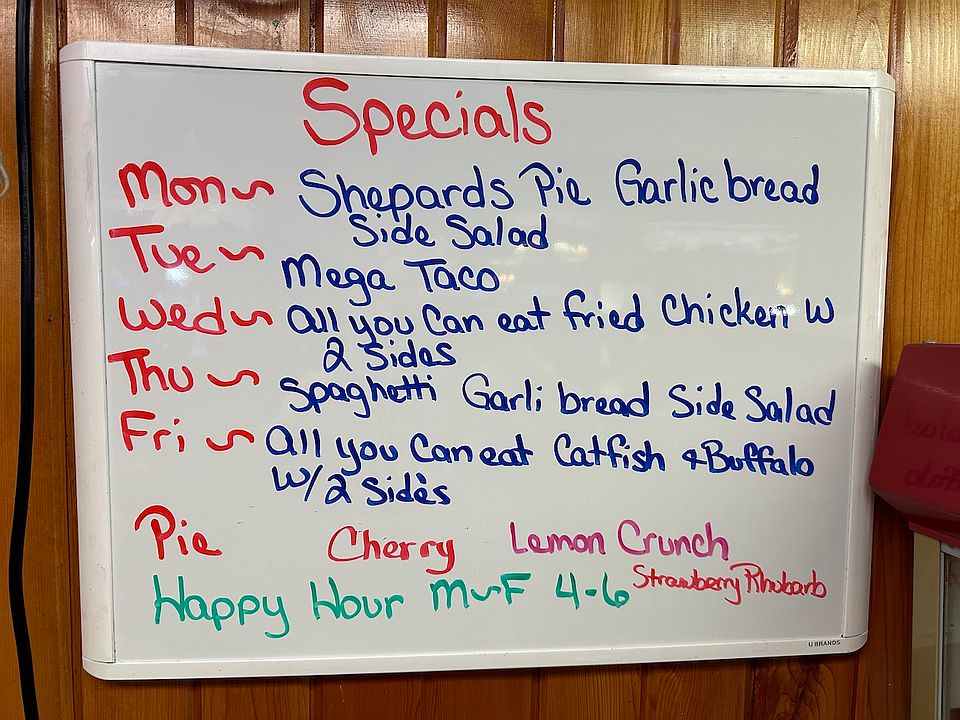 Specials
Mon~ Shepards Pie Garlic bread
Side Salad
Tue~ Mega Taco
Wed~ all you Can eat fried Chicken W
2 Sides
Thu~ Spaghetti Garli bread Side Salad
Fri~ all you Can eat Catfish &Buffalo
W/2 Sides
Pie Cherry Lemon Crunch
Strawberry Rhubarb
Happy Hour M~F 4-6
U BRANDS